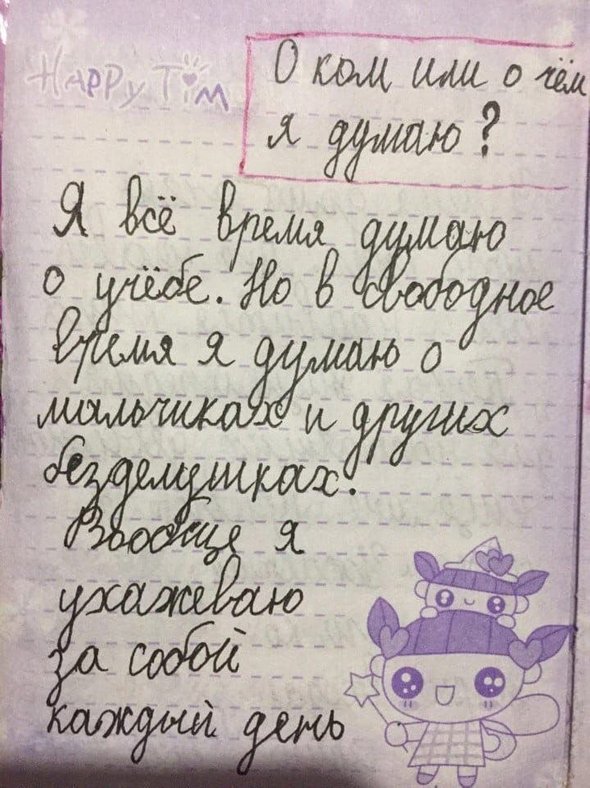 HAPPY TIM
О ком или о чём
я думаю?
Я всё время думаю
о учёбе. Но в свободное
время я думаю о
мальчиках и других
безделушках.
Вообще я
ухажеваю
за собой
каждый день